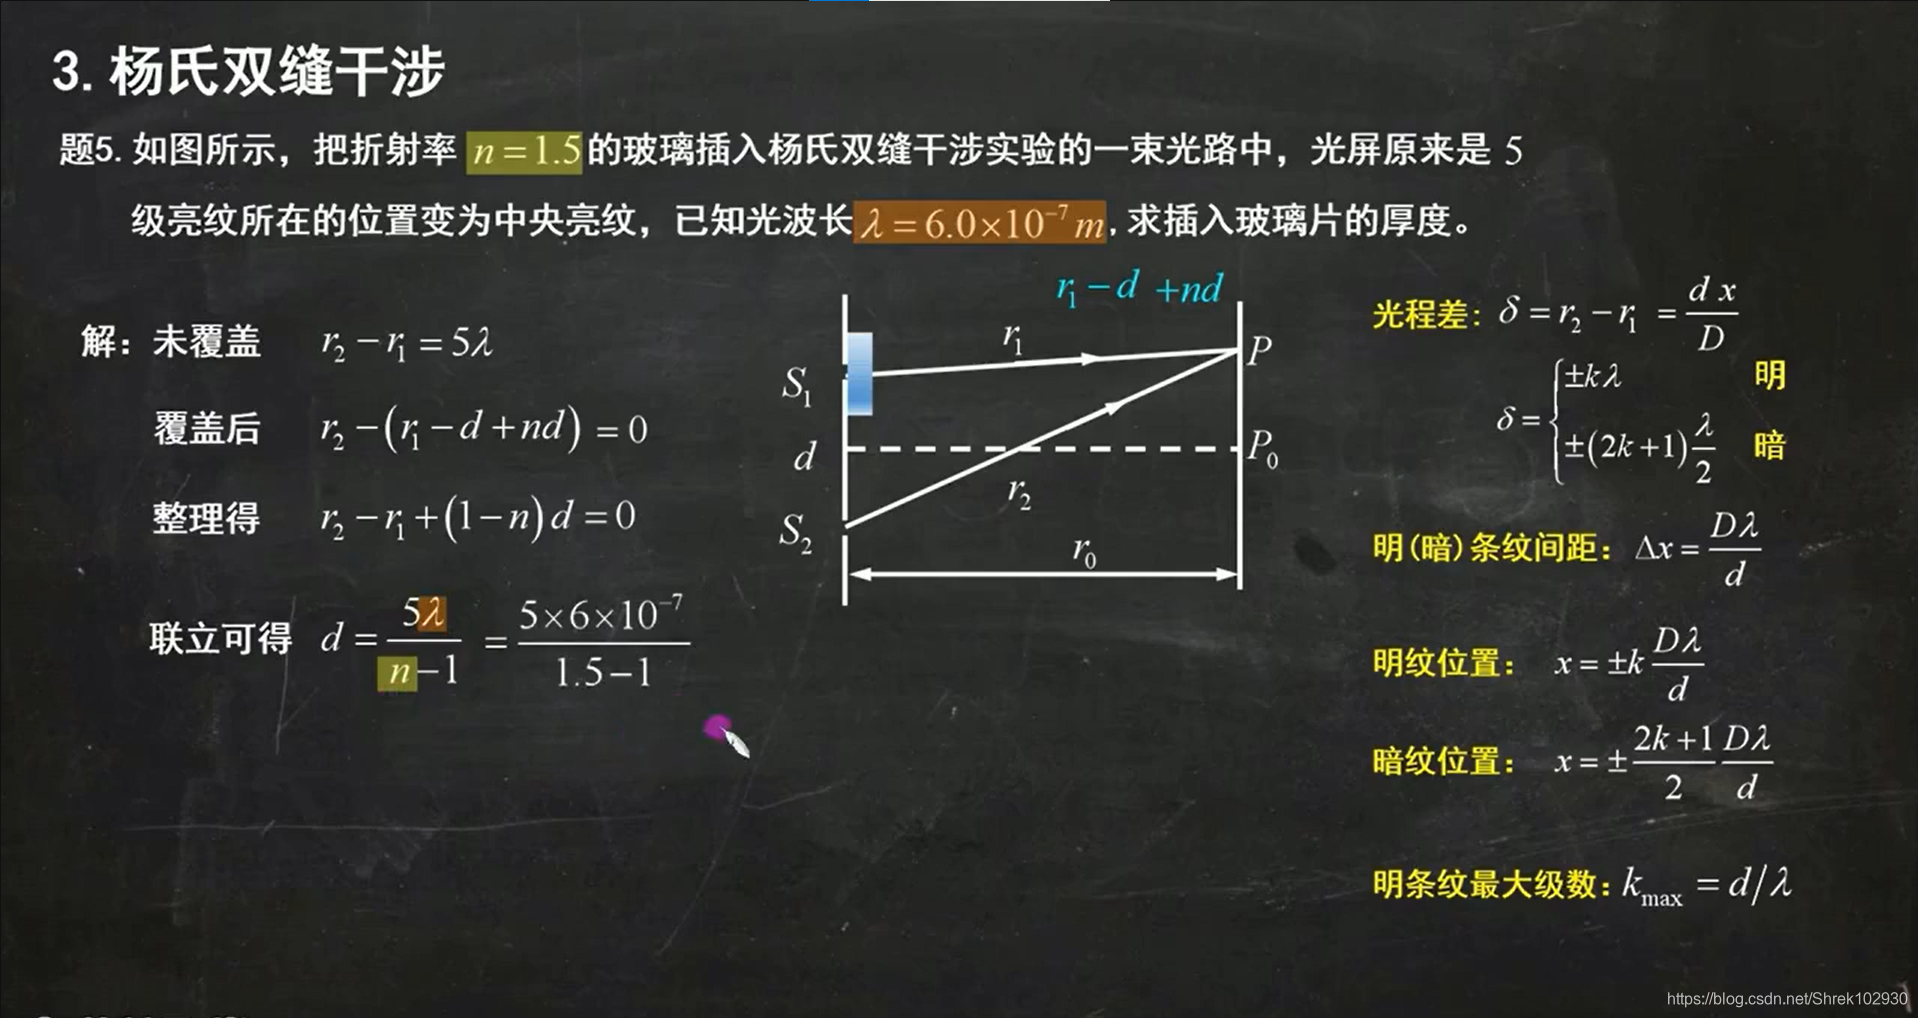 3.杨氏双缝干涉
题5.如图所示，把折射率 n=1.5 的玻璃插入杨氏双缝干涉实验的一束光路中，光屏原来是 5
级亮纹所在的位置变为中央亮纹，已知光波长 λ=6.0×10⁻⁷m，求插入玻璃片的厚度。
解：未覆盖 r₂−r₁=5λ
覆盖后 r₂−(r₁−d+nd)=0
整理得 r₂−r₁+(1−n)d=0
联立可得 d=5λ/(n−1)=(5×6×10⁻⁷)/(1.5−1)
r₁−d +nd
r₁
P
S₁
d
P₀
r₂
S₂
r₀
光程差：δ=r₂−r₁=dx/D
δ={±kλ 明
±(2k+1)λ/2 暗
明(暗)条纹间距：Δx=Dλ/d
明纹位置： x=±k Dλ/d
暗纹位置： x=±(2k+1)/2 Dλ/d
明条纹最大级数：kmax=d/λ
https://blog.csdn.net/Shrek102930